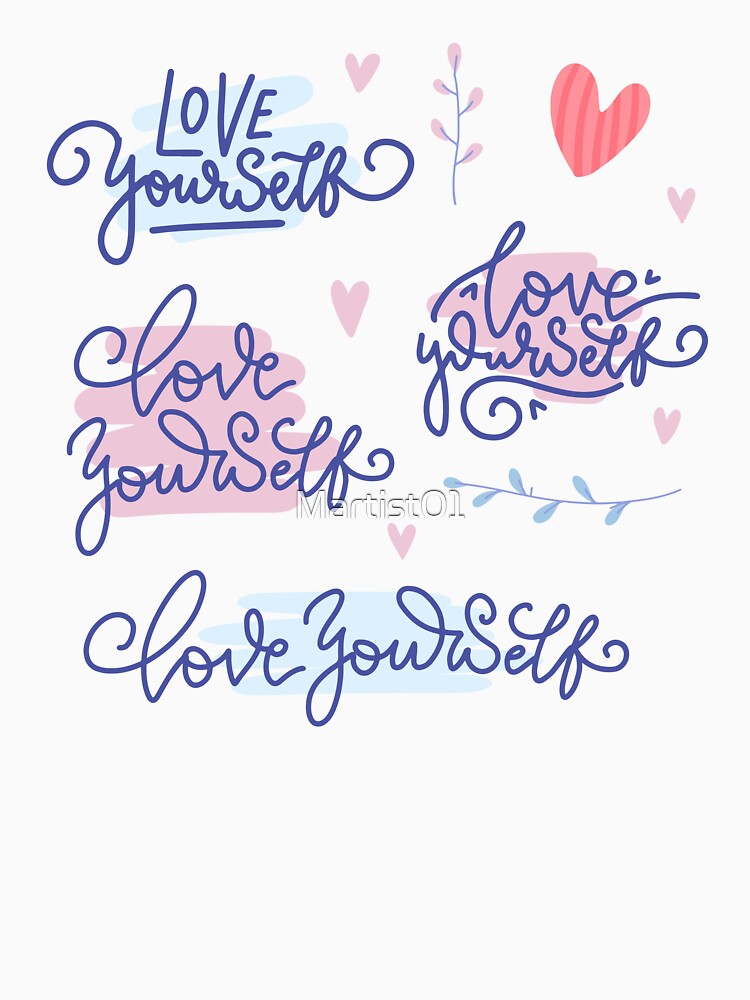 LOVE
yourself
love
yourself
love
yourself
Martist01
love yourself